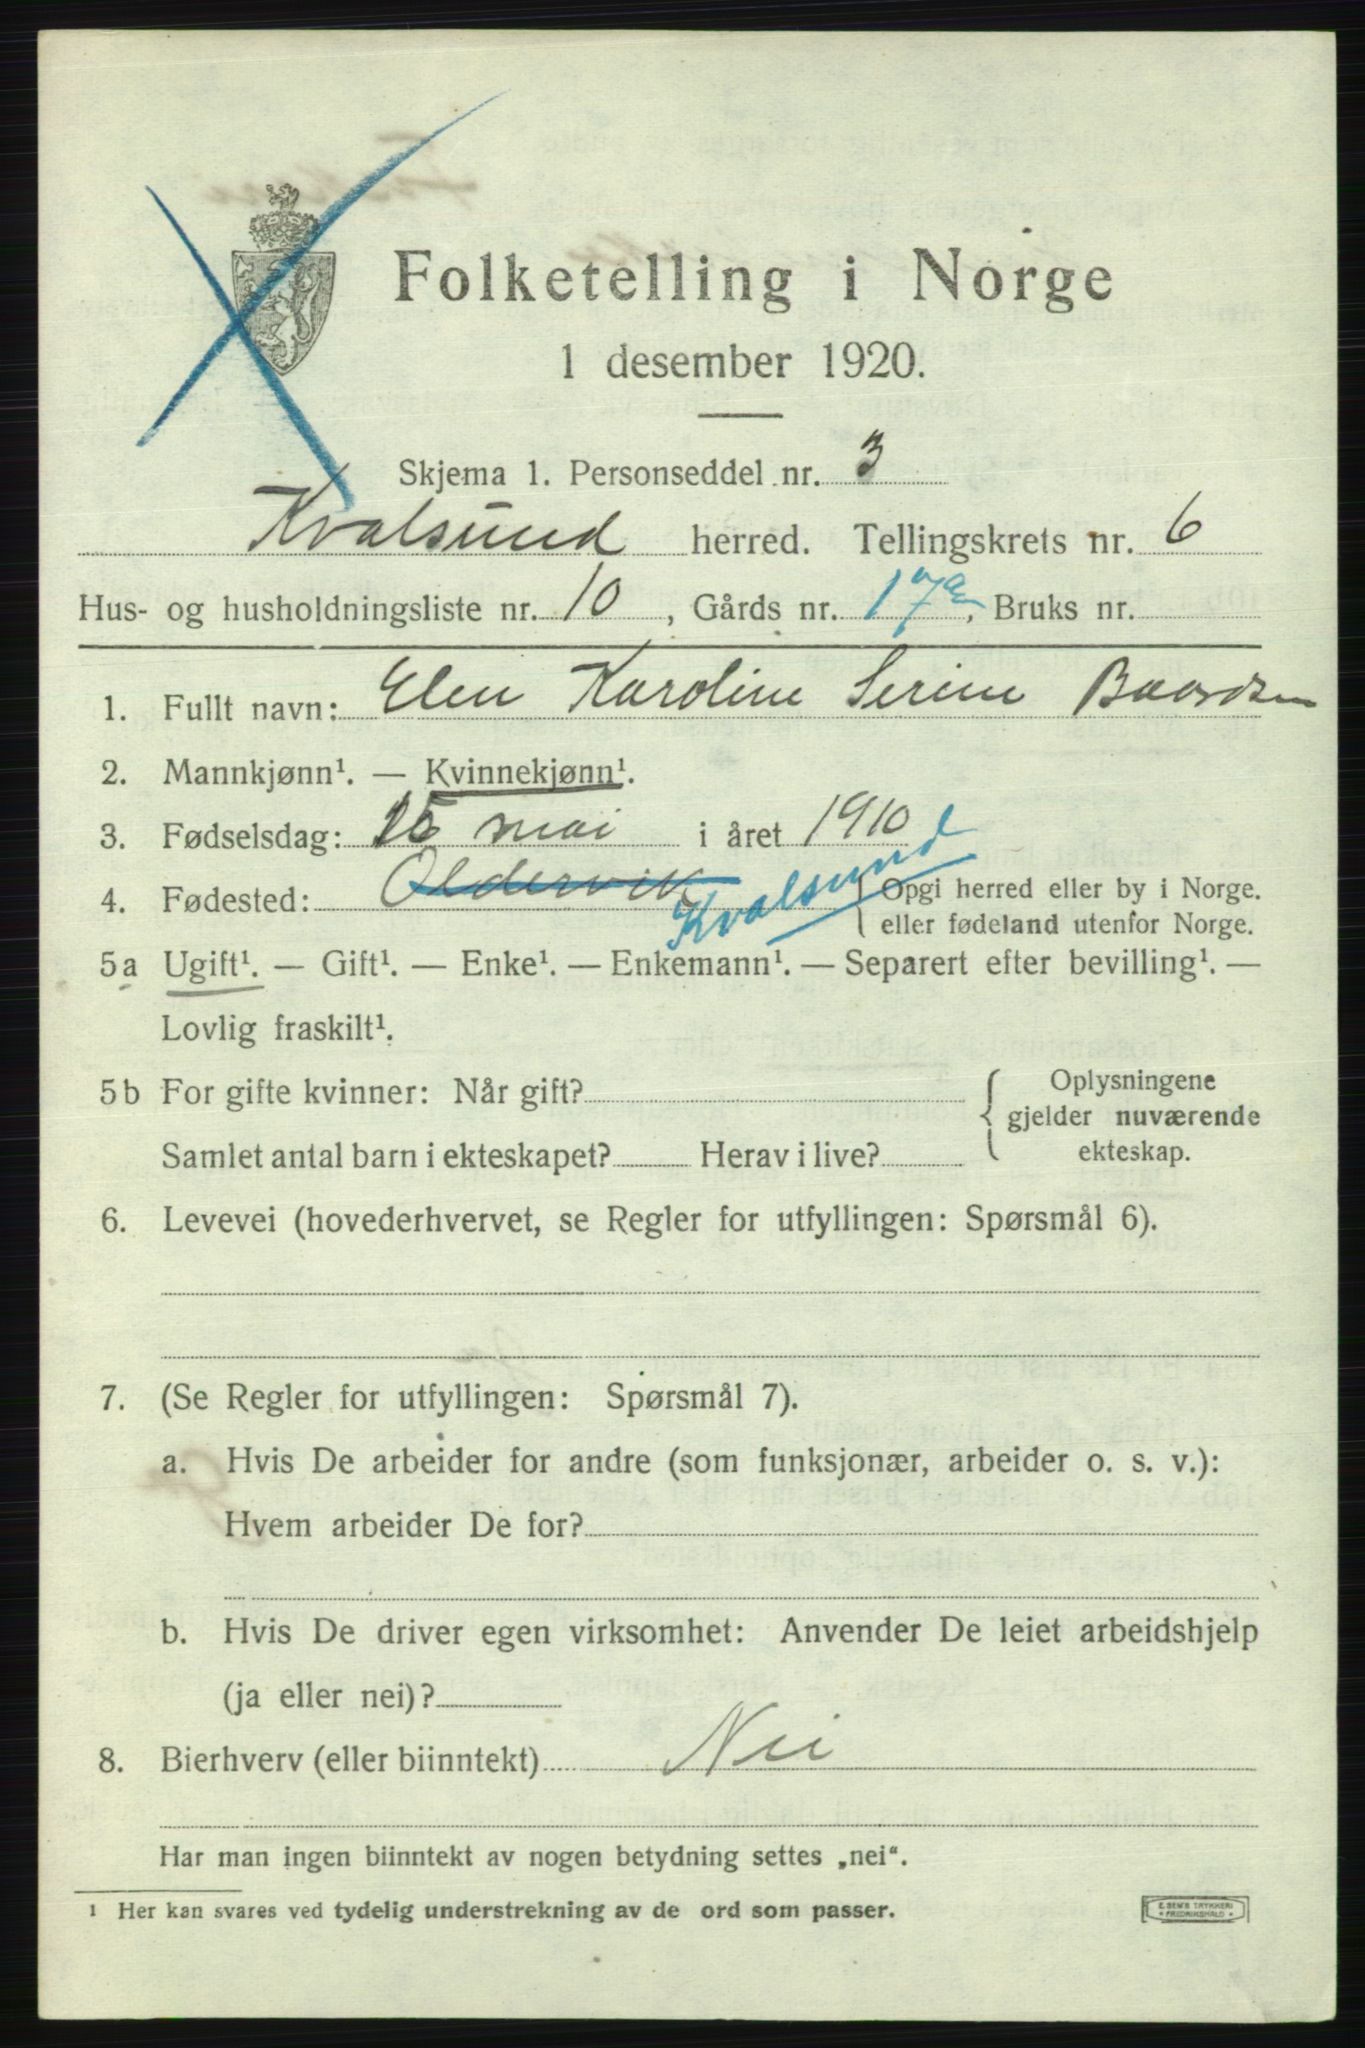 Folketelling i Norge
1 desember 1920.
Skjema 1. Personseddel nr. 3
Kvalsund herred. Tellingskrets nr. 6
Hus- og husholdningsliste nr. 10, Gårds nr. 17a, Bruks nr.
1. Fullt navn: Elen Karoline Serine Baardsen
2. Mannkjønn¹. — Kvinnekjønn¹.
3. Fødselsdag: 15 mai i året 1910
4. Fødested: Oldervik Kvalsund Opgi herred eller by i Norge.
eller fødeland utenfor Norge.
5a Ugift¹. — Gift¹. — Enke¹. — Enkemann¹. — Separert efter bevilling¹. —
Lovlig fraskilt¹.
5b For gifte kvinner: Når gift? Oplysningene
gjelder nuværende
Samlet antal barn i ekteskapet? Herav i live? ekteskap.
6. Levevei (hovederhvervet, se Regler for utfyllingen: Spørsmål 6).
7. (Se Regler for utfyllingen: Spørsmål 7).
a. Hvis De arbeider for andre (som funksjonær, arbeider o. s. v.):
Hvem arbeider De for?
b. Hvis De driver egen virksomhet: Anvender De leiet arbeidshjelp
(ja eller nei)?
8. Bierhverv (eller biinntekt) Nei
Har man ingen biinntekt av nogen betydning settes „nei“.
¹ Her kan svares ved tydelig understrekning av de ord som passer.